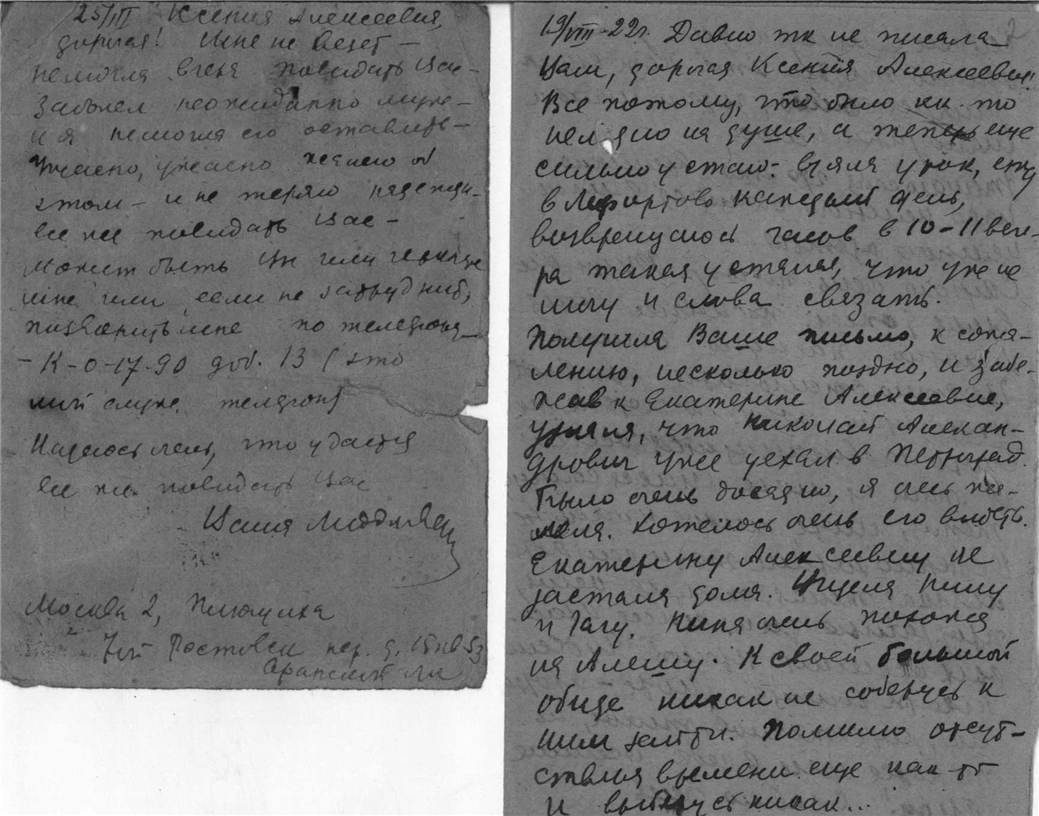 25/III Ксения Алексеевна,
дорогая! Мне не везет –
не могла вчера повидать Вас –
Заболел неожиданно муж –
и я не могла его оставить –
Ужасно, ужасно жалею об
этом – и не теряю надежды
все же повидать Вас –
Может быть Вы или
мне или если не затруднит,
позвонить мне по телефону
– К-0-17-90 доб. 13 (это
мой служ. телефон)
Надеюсь очень, что удастся
все же повидать Вас
Ваша
Москва 2, Плющиха
7ой Ростовск. пер. д. 15 кв 53
19/VIII-22г. Давно так не писала
Вам, дорогая Ксения Алексеевна!
Все потому, что было как-то
на душе, а теперь еще
сильно устаю: взяла урок, езжу
в Лефортово каждый день,
возвращаюсь часов в 10-11 вече-
ра такая усталая, что уже не
могу и слова связать.
Получила Ваше письмо, к сожа-
лению, несколько поздно, и забе-
жав к Екатерине Алексеевне,
узнала, что Николай Алексан-
дрович уже уехал в Петроград.
Было очень досадно, я очень жа-
лела. Хотелось очень его видеть.
Екатерину Алексеевну не
застала дома. Видела Нину
и Тату. Нина очень похожа
на Алешу. К своей большой
обиде никак не соберусь к
ним зайти. Помимо отсут-
ствия времени еще как-то
и выберусь никак...